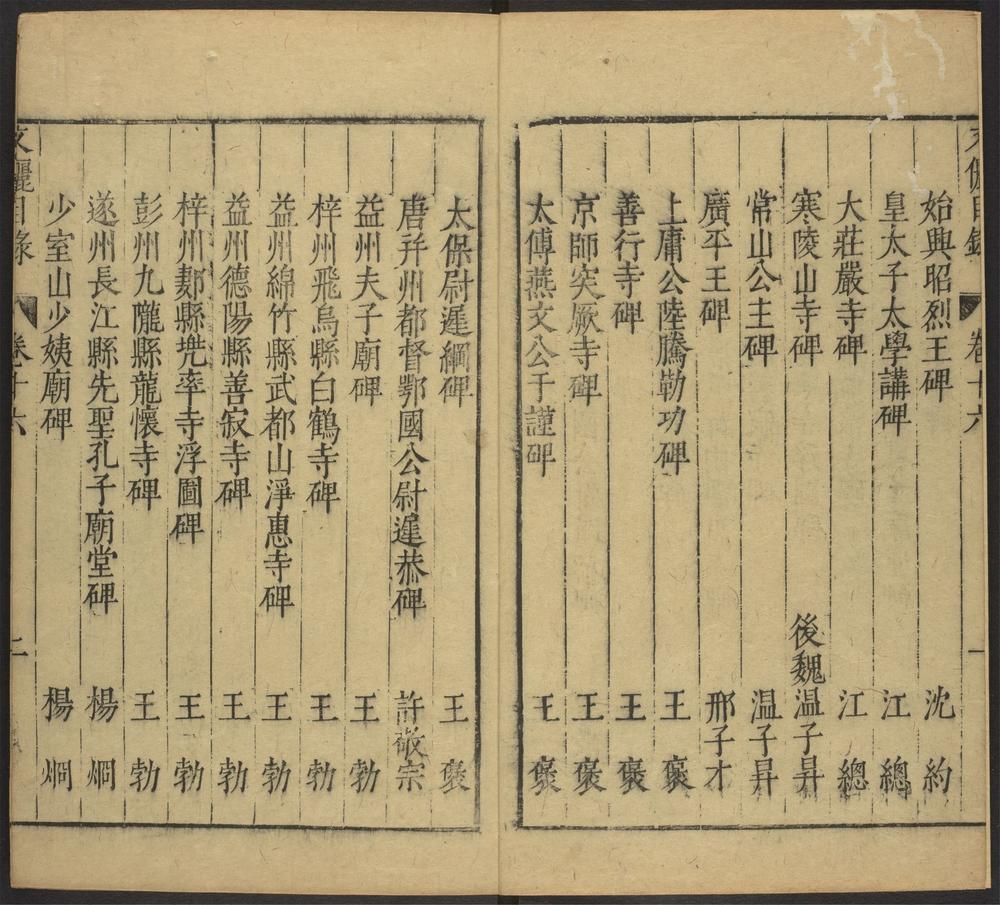 文儷目錄 卷十六 一
始興昭烈王碑 沈約
皇太子太學講碑 江總
大莊嚴寺碑 江總
寒陵山寺碑 後魏溫子昇
常山公主碑 溫子昇
廣平王碑 邢子才
上庸公陸騰勒功碑 王褒
善行寺碑 王褒
京師突厥寺碑 王褒
太傅燕文公于謹碑 王褒
太保尉遲綱碑 王褒
唐幷州都督鄂國公尉遲恭碑 許敬宗
益州夫子廟碑 王勃
梓州飛烏縣白鶴寺碑 王勃
益州綿竹縣武都山淨惠寺碑 王勃
益州德陽縣善寂寺碑 王勃
梓州郪縣兠率寺浮圖碑 王勃
彭州九隴縣龍懷寺碑 王勃
遂州長江縣先聖孔子廟堂碑 楊烱
少室山少姨廟碑 楊烱
文儷目錄 卷十六 二